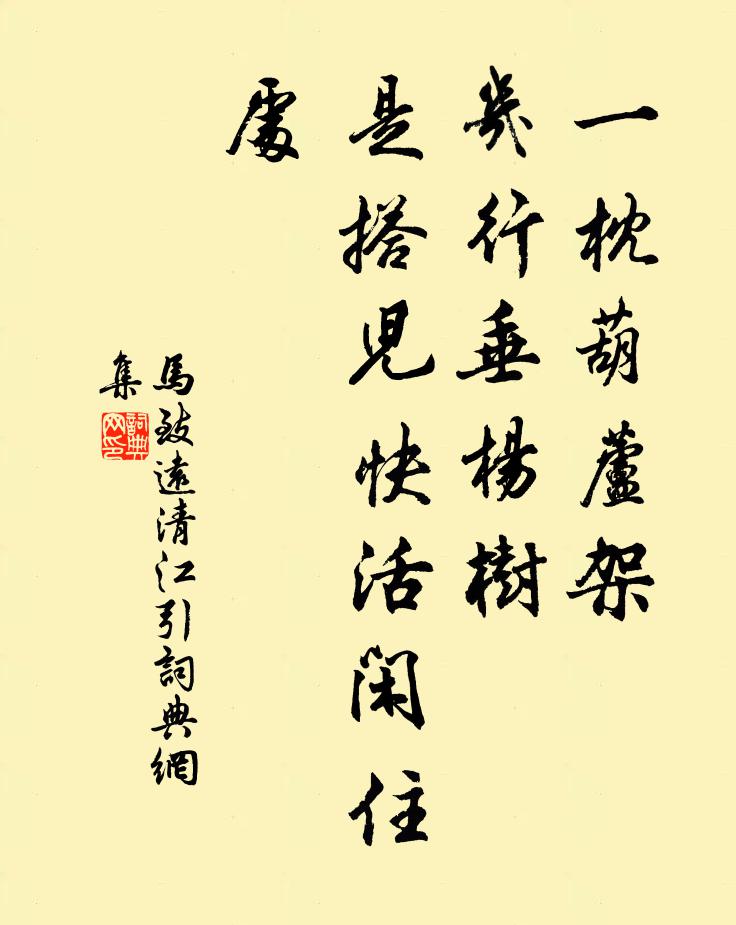 一枕葫蘆架
幾行垂楊樹
是搭兒快活閑住
處
馬致遠清江引詞典網
集
詞典
网印